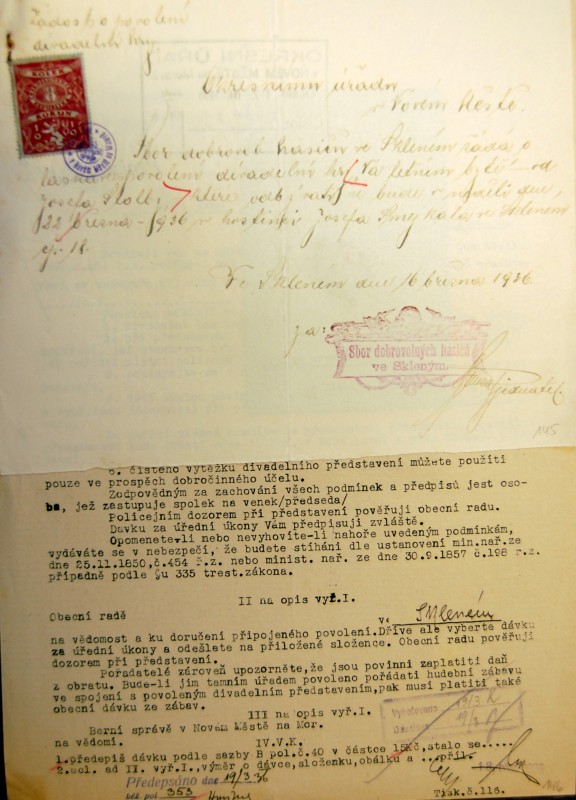 Žádost o povolení
divadelní hry
KOLEK
Okresnímu úřadu
v Novém Městě.
Sbor dobrovol. hasičů ve Skleném žádá o
povolení divadelní hry, Na letním bytě od
Josefa Štolby, která odbývati se bude v neděli dne
22 března 1936 v hostinci Josefa Smykala ve Skleném
čp. 18.
Ve Skleném dne 16 března 1936.
za:
Sbor dobrovolných hasičů
ve Skleném.
jednatel.
145
6. čistého výtěžku divadelního představení můžete použíti
pouze ve prospěch dobročinného účelu.
Zodpovědným za zachování všech podmínek a předpisů jest oso-
ba, jež zastupuje spolek na venek/předseda/
Policejním dozorem při představení pověřuji obecní radu.
Dávku za úřední úkony Vám předpisuji zvláště.
Opomenete-li nebo nevyhovíte-li nahoře uvedeným podmínkám,
vydáváte se v nebezpečí, že budete stíháni dle ustanovení min.nař.ze
dne 25.11.1850,č.454 ř.z. nebo minist. nař. ze dne 30.9.1857 č.198 ř.z.
případně podle §u 335 trest.zákona.
II na opis vyř.I.
Obecní radě
ve Skleném
na vědomost a ku doručení připojeného povolení.Dříve ale vyberte dávku
za úřední úkony a odešlete na přiložené složence. Obecní radu pověřuji
dozorem při představení.
Pořadatelé zároveň upozorněte,že jsou povinni zaplatiti daň
z obratu. Bude-li jim tamním úřadem povoleno pořádati hudební zábavu
ve spojení s povoleným divadelním představením,pak musí platiti také
obecní dávku ze zábav.
III na opis vyř.I.
Berní správě v Novém Městě na Mor.
na vědomí.
Vyhotoveno
IV.V.K.
1.předepiš dávku podle sazby B pol.č.40 v částce 15Kč,stalo se.....
2.vol. ad II. vyř.I.,výměr o dávce,složenku,obálku a ...příl.
Předepsáno dne 19/3 36
pol 353
Tisk.č.116.